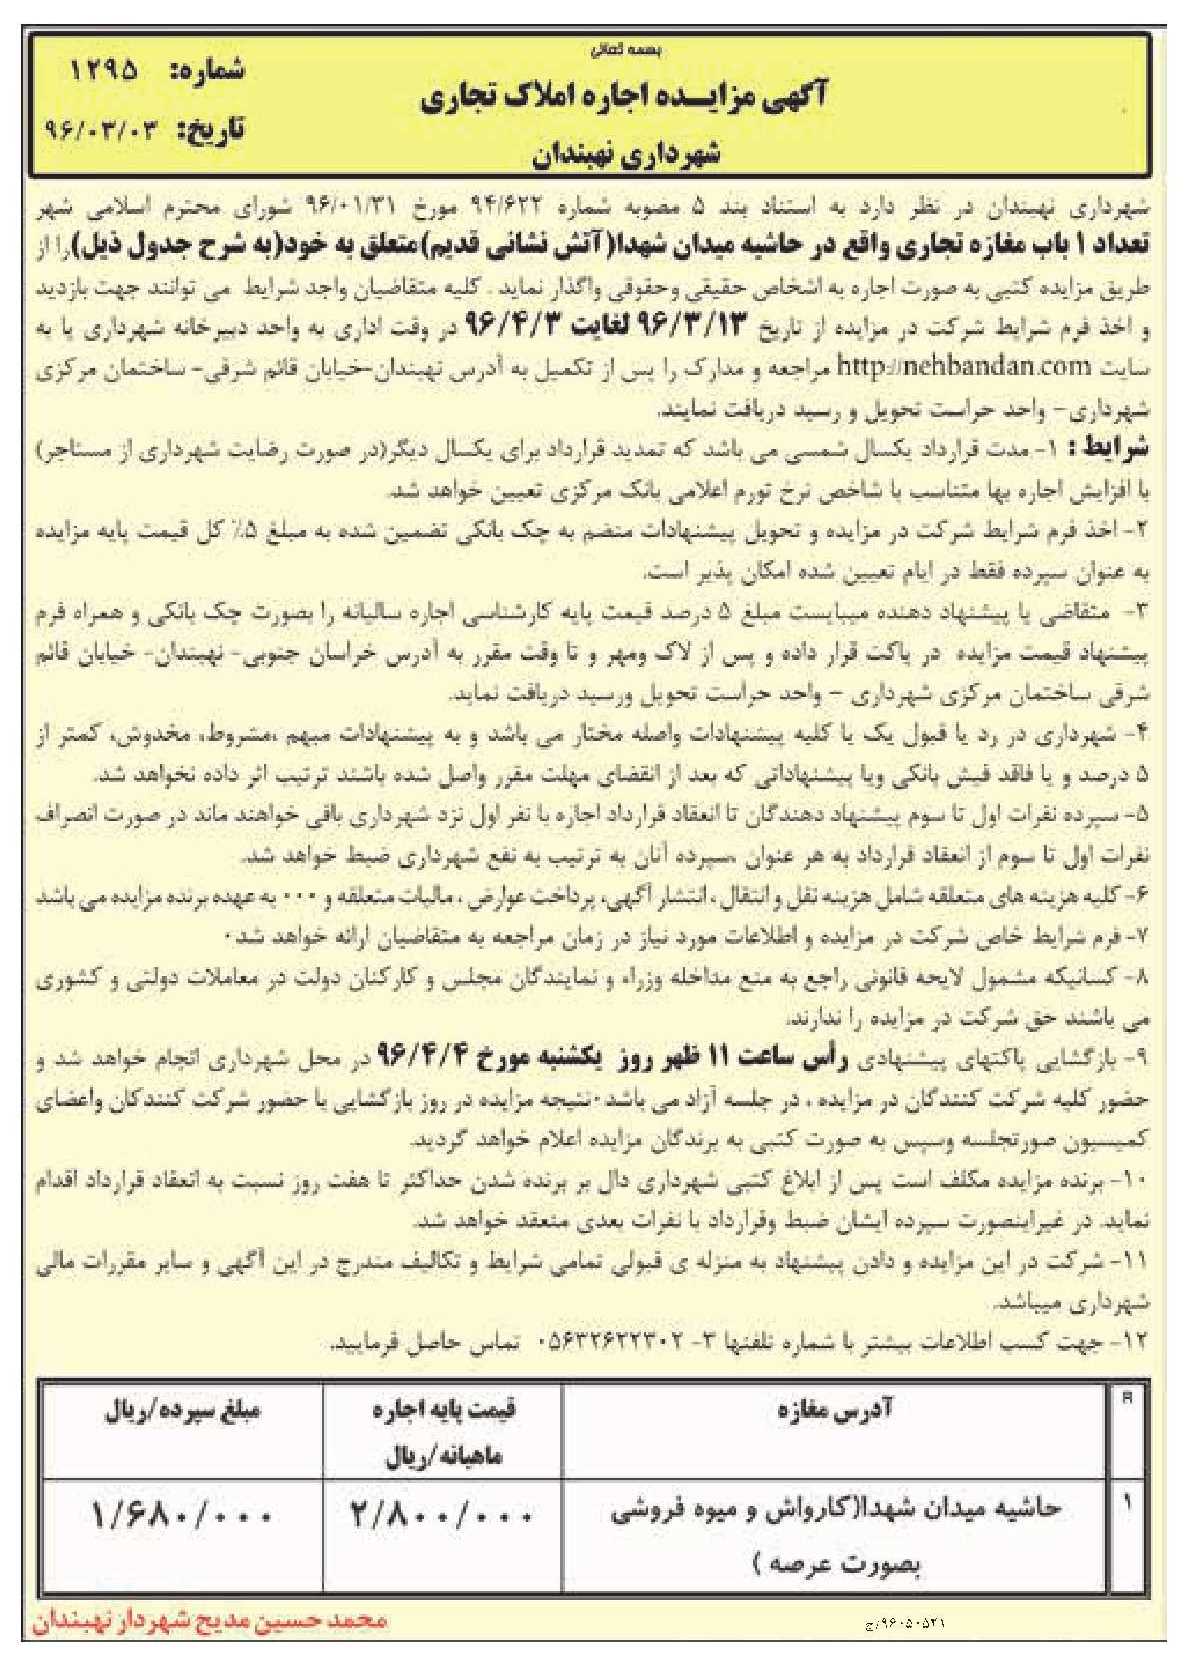 بسمه تعالی
آگهی مزایـــده اجاره املاک تجاری
شهرداری نهبندان
شماره: ۱۲۹۵
تاریخ: ۹۶/۰۳/۰۳
شهرداری نهبندان در نظر دارد به استناد بند ۵ مصوبه شماره ۹۴/۶۲۲ مورخ ۹۶/۰۱/۳۱ شورای محترم اسلامی شهر
تعداد ۱ باب مغازه تجاری واقع در حاشیه میدان شهدا(آتش نشانی قدیم)متعلق به خود(به شرح جدول ذیل)را از
طریق مزایده کتبی به صورت اجاره به اشخاص حقیقی وحقوقی واگذار نماید . کلیه متقاضیان واجد شرایط می توانند جهت بازدید
و اخذ فرم شرایط شرکت در مزایده از تاریخ ۹۶/۳/۱۳ لغایت ۹۶/۴/۳ در وقت اداری به واحد دبیرخانه شهرداری یا به
سایت http://nehbandan.com مراجعه و مدارک را پس از تکمیل به آدرس نهبندان-خیابان قائم شرقی- ساختمان مرکزی
شهرداری- واحد حراست تحویل و رسید دریافت نمایند.
شرایط : ۱- مدت قرارداد یکسال شمسی می باشد که تمدید قرارداد برای یکسال دیگر(در صورت رضایت شهرداری از مستاجر)
با افزایش اجاره بها متناسب با شاخص نرخ تورم اعلامی بانک مرکزی تعیین خواهد شد.
۲- اخذ فرم شرایط شرکت در مزایده و تحویل پیشنهادات منضم به چک بانکی تضمین شده به مبلغ ۵٪ کل قیمت پایه مزایده
به عنوان سپرده فقط در ایام تعیین شده امکان پذیر است.
۳- متقاضی یا پیشنهاد دهنده میبایست مبلغ ۵ درصد قیمت پایه کارشناسی اجاره سالیانه را بصورت چک بانکی و همراه فرم
پیشنهاد قیمت مزایده در پاکت قرار داده و پس از لاک ومهر و تا وقت مقرر به آدرس خراسان جنوبی- نهبندان- خیابان قائم
شرقی ساختمان مرکزی شهرداری – واحد حراست تحویل ورسید دریافت نماید.
۴- شهرداری در رد یا قبول یک یا کلیه پیشنهادات واصله مختار می باشد و به پیشنهادات مبهم ،مشروط، مخدوش، کمتر از
۵ درصد و یا فاقد فیش بانکی ویا پیشنهاداتی که بعد از انقضای مهلت مقرر واصل شده باشند ترتیب اثر داده نخواهد شد.
۵- سپرده نفرات اول تا سوم پیشنهاد دهندگان تا انعقاد قرارداد اجاره با نفر اول نزد شهرداری باقی خواهند ماند در صورت انصراف
نفرات اول تا سوم از انعقاد قرارداد به هر عنوان ،سپرده آنان به ترتیب به نفع شهرداری ضبط خواهد شد.
۶- کلیه هزینه های متعلقه شامل هزینه نقل و انتقال ، انتشار آگهی، پرداخت عوارض ، مالیات متعلقه و ۰۰۰ به عهده برنده مزایده می باشد
۷- فرم شرایط خاص شرکت در مزایده و اطلاعات مورد نیاز در زمان مراجعه به متقاضیان ارائه خواهد شد۰
۸- کسانیکه مشمول لایحه قانونی راجع به منع مداخله وزراء و نمایندگان مجلس و کارکنان دولت در معاملات دولتی و کشوری
می باشند حق شرکت در مزایده را ندارند.
۹- بازگشایی پاکتهای پیشنهادی رأس ساعت ۱۱ ظهر روز یکشنبه مورخ ۹۶/۴/۴ در محل شهرداری انجام خواهد شد و
حضور کلیه شرکت کنندگان در مزایده ، در جلسه آزاد می باشد۰نتیجه مزایده در روز بازگشایی با حضور شرکت کنندگان واعضای
کمیسیون صورتجلسه وسپس به صورت کتبی به برندگان مزایده اعلام خواهد گردید.
۱۰- برنده مزایده مکلف است پس از ابلاغ کتبی شهرداری دال بر برنده شدن حداکثر تا هفت روز نسبت به انعقاد قرارداد اقدام
نماید. در غیراینصورت سپرده ایشان ضبط وقرارداد با نفرات بعدی منعقد خواهد شد.
۱۱- شرکت در این مزایده و دادن پیشنهاد به منزله ی قبولی تمامی شرایط و تکالیف مندرج در این آگهی و سایر مقررات مالی
شهرداری میباشد.
۱۲- جهت کسب اطلاعات بیشتر با شماره تلفنها ۳- ۰۵۶۳۲۶۲۲۳۰۲ تماس حاصل فرمایید.
R آدرس مغازه قیمت پایه اجاره ماهیانه/ریال مبلغ سپرده/ریال
۱ حاشیه میدان شهدا(کارواش و میوه فروشی بصورت عرصه ) ۲/۸۰۰/۰۰۰ ۱/۶۸۰/۰۰۰
محمد حسین مدیح شهردار نهبندان
۹۶۰۵۰۵۲۱/ج